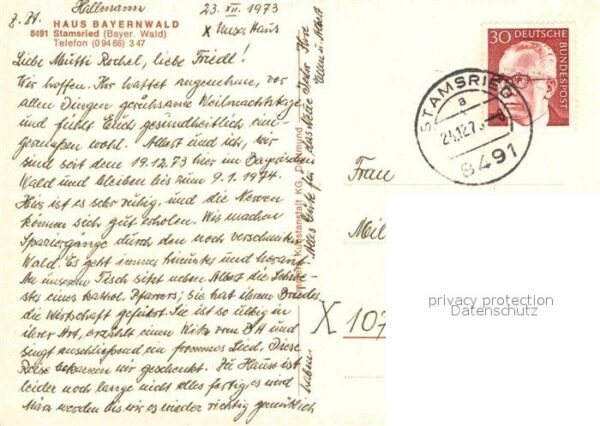 z. Zt. Hallmann
HAUS BAYERNWALD
8491 Stamsried (Bayer. Wald)
Telefon (09466) 347
23. XII. 1973
X Unser Haus
Liebe Mutti Rochel, liebe Friedl!
Wir hoffen, Ihr hattet angenehme, vor
allen Dingen geruhsame Weihnachtstage
und fühlt Euch gesundheitlich ein-
germaßen wohl. Albert und ich, wir
sind seit dem 19.12.73 hier im Bayrischen
Wald und bleiben bis zum 9.1.1974.
Hier ist es sehr ruhig, und die Nerven
können sich gut erholen. Wir machen
Spaziergänge durch den noch verschneiten
Wald. Es geht immer hinunter und herauf.
An unserem Tisch sitzt neben Albert die Schwe-
ster eines kathol. Pfarrers; sie hat ihrem Bruder
die Wirtschaft geführt. Sie ist so ulkig in
ihrer Art, erzählt einen Witz vom BH und
singt anschließend ein frommes Lied. Diese
Reise bekamen wir geschenkt. Zu Hause ist
leider noch lange nicht alles fertig, es wird
März werden bis wir es wieder richtig gemütlich
haben. Alles Gute für das neue Jahr Eure
u. Albert
Kunstanstalt KG, Dortmund
30 DEUTSCHE
BUNDESPOST
STAMSRIED
a
24.12.73
8491
Frau
Mil
X 107
privacy protection
Datenschutz